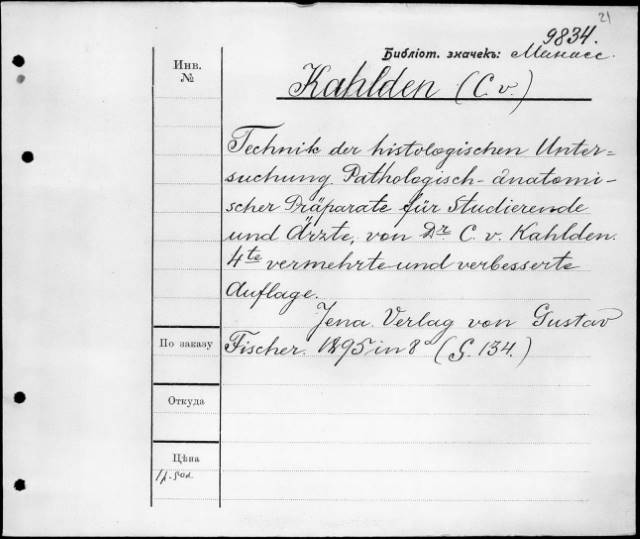 21
9834.
Библіот. значекъ: Манасс.
Инв.
№
Kahlden (C. v.)
Technik der histologischen Unter=
suchung Pathologisch-anatomi-
scher Präparate für Studierende
und Ärzte, von Dr. C. v. Kahlden.
4te vermehrte und verbesserte
Auflage.
Jena. Verlag von Gustav
По заказу
Fischer. 1895 in 8° (S. 134.)
Откуда
Цѣна